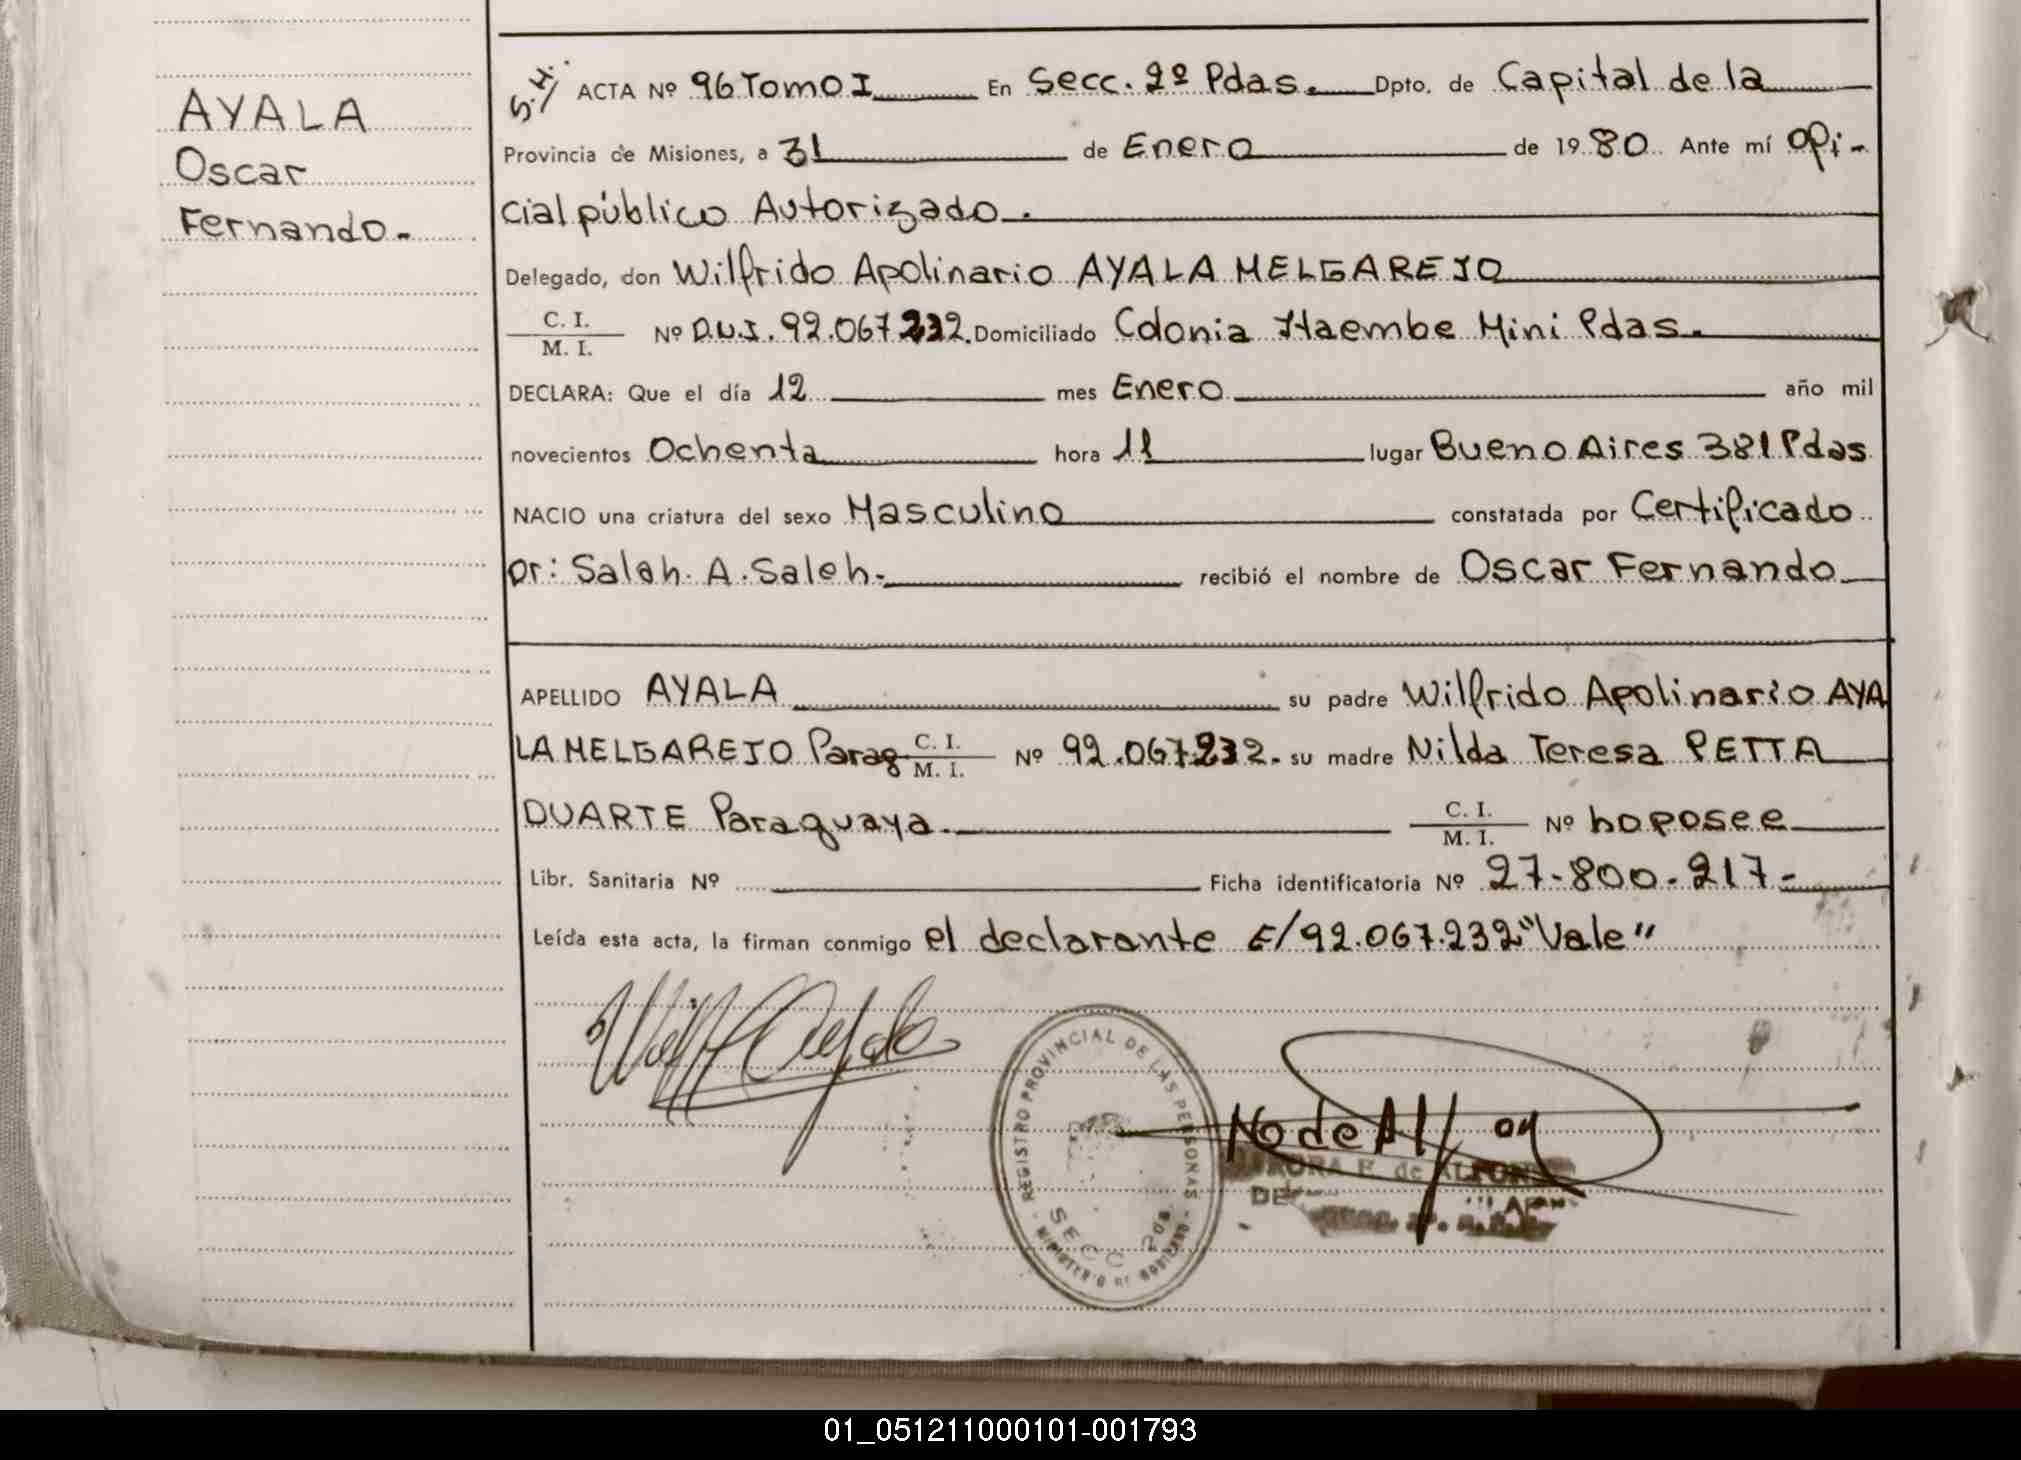 AYALA
Oscar
Fernando.-
S.H.
ACTA Nº 96 Tomo I En Secc. 2º Pdas. Dpto. de Capital de la
Provincia de Misiones, a 31 de Enero de 1980. Ante mí ofi-
cial público Autorizado.
Delegado, don Wilfrido Apolinario AYALA MELGAREJO
C. I.
M. I. Nº D.N.I. 92.067.232. Domiciliado Colonia Itaembe Mini Pdas.
DECLARA: Que el día 12 mes Enero año mil
novecientos Ochenta hora 11 lugar Bueno Aires 381 Pdas
NACIO una criatura del sexo Masculino constatada por Certificado
Dr: Salah. A. Saleh.- recibió el nombre de Oscar Fernando
APELLIDO AYALA su padre Wilfrido Apolinario AYA
LA MELGAREJO Parag C. I. M. I. Nº 92.067.232. su madre Nilda Teresa PETTA
DUARTE Paraguaya. C. I. M. I. Nº no posee
Libr. Sanitaria Nº Ficha identificatoria Nº 27-800-217-
Leída esta acta, la firman conmigo el declarante E/92.067.232 "Vale"
REGISTRO PROVINCIAL DE LAS PERSONAS
SECC 2da
MINISTERIO DE GOBIERNO
F. de ALFON
01_051211000101-001793